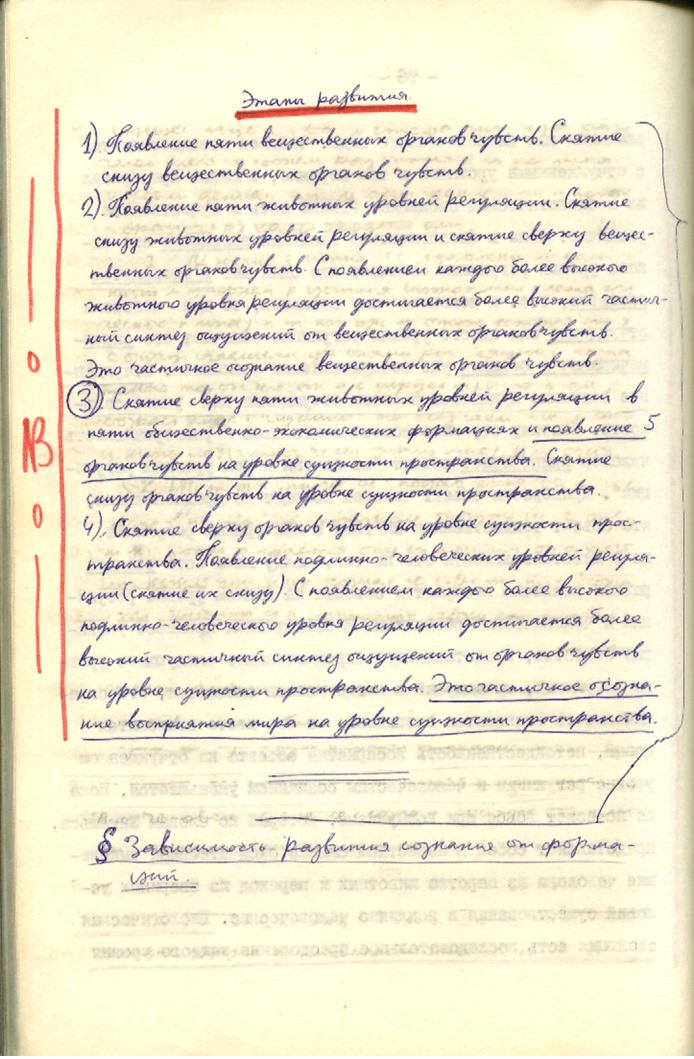 Этапы развития.
1). Появление пяти вещественных органов чувств. Снятие
снизу вещественных органов чувств.
2). Появление пяти животных уровней регуляции. Снятие
снизу животных уровней регуляции и снятие сверху вещес-
твенных органов чувств. С появлением каждого более высокого
животного уровня регуляции достигается более высокий частич-
ный синтез ощущений от вещественных органов чувств.
Это частичное осознание вещественных органов чувств.
3). Снятие сверху пяти животных уровней регуляции в
пяти общественно-экономических формациях и появление 5
органов чувств на уровне сущности пространства. Снятие
снизу органов чувств на уровне сущности пространства.
4). Снятие сверху органов чувств на уровне сущности прос-
транства. Появление подлинно-человеческих уровней регуля-
ции (снятие их снизу). С появлением каждого более высокого
подлинно-человеческого уровня регуляции достигается более
высокий частичный синтез ощущений от органов чувств
на уровне сущности пространства. Это частичное осозна-
ние восприятия мира на уровне сущности пространства.
NB
§ Зависимость развития сознания от форма-
ций